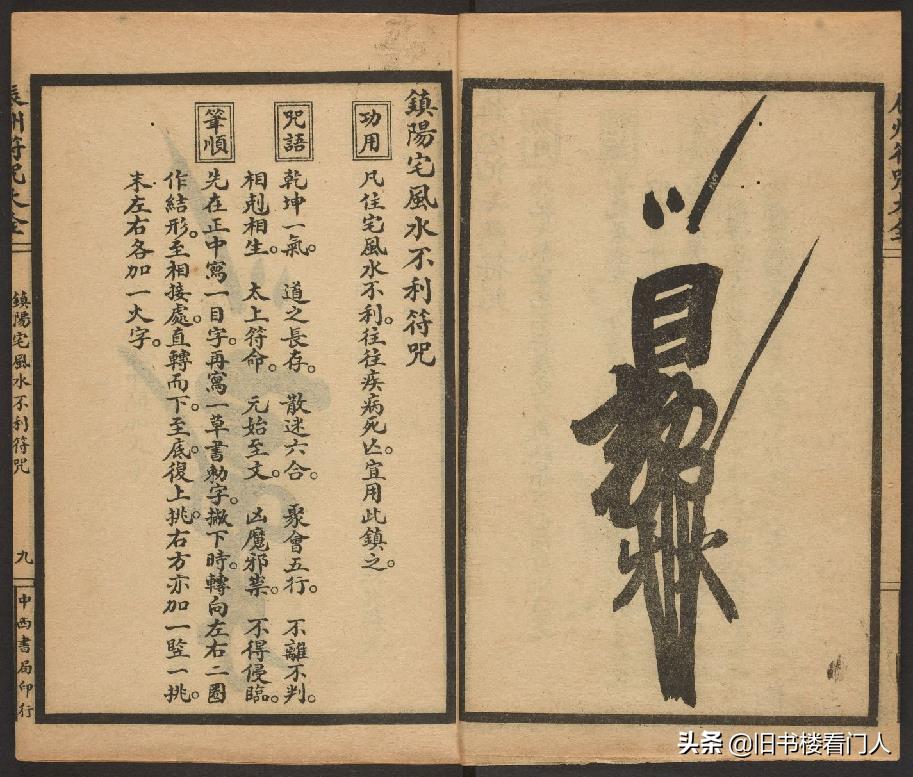 鎮陽宅風水不利符咒
功用
凡住宅風水不利。往往疾病死亡。宜用此鎮之。
咒語
乾坤一氣。道之長存。散迷六合。聚會五行。不離不判。
相剋相生。太上符命。元始至文。凶魔邪祟。不得侵臨。
筆順
先在正中寫一目字。再寫一草書勅字。撇下時。轉向左右二圈
作結形。至相接處。直轉而下。至底。復上挑。右方亦加一竪一挑。
末左右各加一火字。
辰州符咒大全
鎮陽宅風水不利符咒
九
中西書局印行
目
頭条 @旧书楼看门人